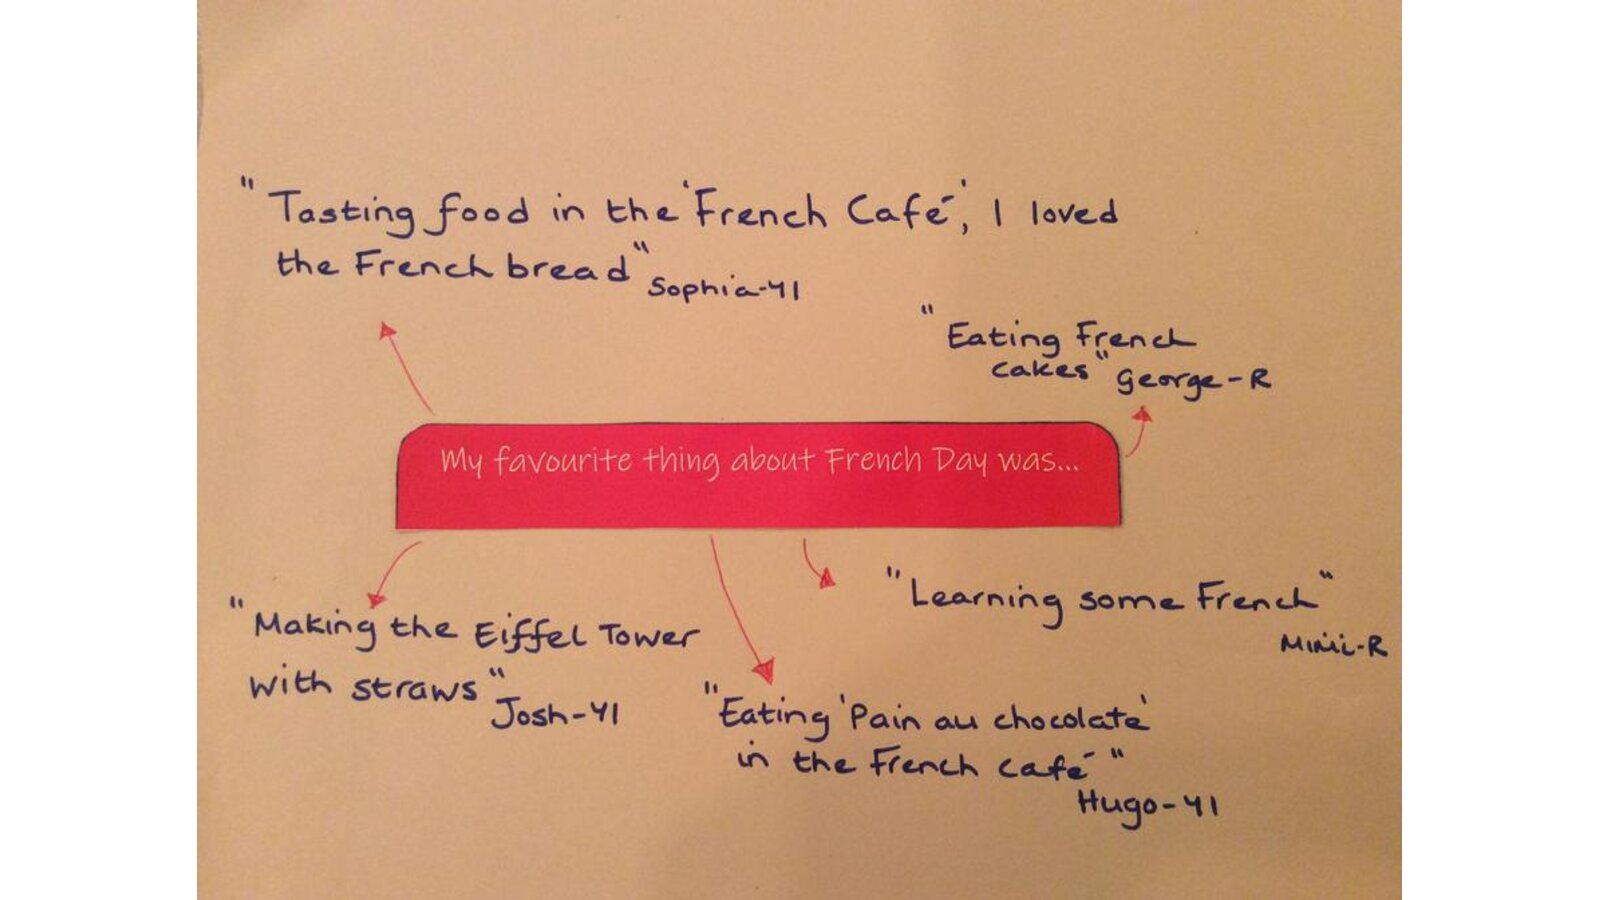 "Tasting food in the 'French Café', I loved
the French bread"
Sophia-Y1
"Eating French
cakes" George-R
My favourite thing about French Day was...
"Making the Eiffel Tower
with straws"
Josh-Y1
"Learning some French"
Mimi-R
"Eating 'Pain au chocolate'
in the French café"
Hugo-Y1